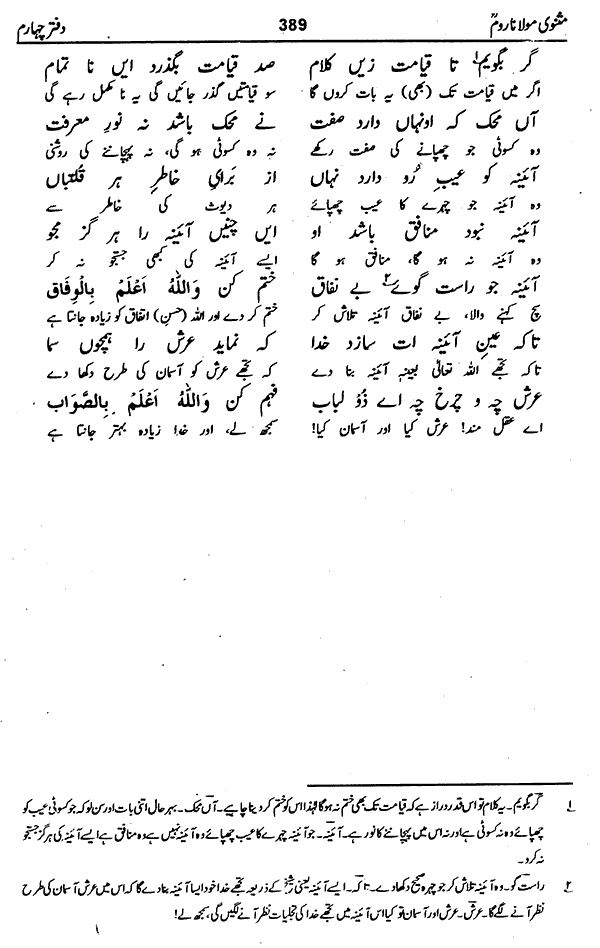 مثنوی مولانا رومؒ 389 دفتر چہارم
گر بگویم؂۱ تا قیامت زیں کلام صد قیامت بگذرد ایں نا تمام
اگر میں قیامت تک (بھی) یہ بات کروں گا سو قیامتیں گذر جائیں گی یہ نا مکمل رہے گی
آں محک کہ اونہاں دارد صفت نے محک باشد نہ نورِ معرفت
وہ کسوٹی جو چھپانے کی صفت رکھے نہ وہ کسوٹی ہو گی، نہ پہچاننے کی روشنی
آئینہ کو عیبِ رُو دارد نہاں از برایِ خاطرِ ہر قلتباں
وہ آئینہ جو چہرے کا عیب چھپائے ہر دیوث کی خاطر سے
آئینہ نبود منافق باشد او ایں چنیں آئینہ را ہر گز مجو
وہ آئینہ نہ ہو گا، منافق ہو گا ایسے آئینہ کی کبھی جستجو نہ کر
آئینہ جو راست گوئے؂۲ بے نفاق ختم کن وَاللہُ اَعْلَمْ بِالْوِفَاق
سچ کہنے والا، بے نفاق آئینہ تلاش کر ختم کر دے اور اللہ (حسنِ) اتفاق کو زیادہ جانتا ہے
تاکہ عینِ آئینہ ات سازد خدا کہ نماید عرش را ہمچوں سما
تاکہ تجھے اللہ تعالٰی بعینہٖ آئینہ بنا دے کہ تجھے عرش کو آسمان کی طرح دکھا دے
عرش چہ و چرخ چہ اے ذُوْ لباب فہم کن وَاللہُ اَعْلَمْ بِالصَّوَاب
اے عقل مند! عرش کیا اور آسمان کیا! سمجھ لے، اور خدا زیادہ بہتر جانتا ہے
۱ گر بگویم۔ یہ کلام تو اس قدر دراز ہے کہ قیامت تک بھی ختم نہ ہوگا لہٰذا اس کو ختم کر دینا چاہیے۔ آں محک۔ بہر حال اتنی بات اور سن لو کہ جو کسوٹی عیب کو
چھپائے وہ نہ کسوٹی ہے اور نہ اس میں پہچاننے کا نور ہے۔ آئینہ۔ جو آئینہ چہرے کا عیب چھپائے وہ آئینہ نہیں ہے وہ منافق ہے ایسے آئینہ کی ہرگز جستجو
نہ کرو۔
۲ راست گو۔ وہ آئینہ تلاش کر جو چہرہ صحیح دکھا دے۔ تاکہ۔ ایسے آئینہ یعنی شیخ کے ذریعہ تجھے خدا خود ایسا آئینہ بنا دے گا کہ اس میں عرش آسمان کی طرح
نظر آنے لگے گا۔ عرش۔ عرش اور آسمان تو کیا اس آئینہ میں تجھے خدا کی تجلیات نظر آنے لگیں گی، سمجھ لے!